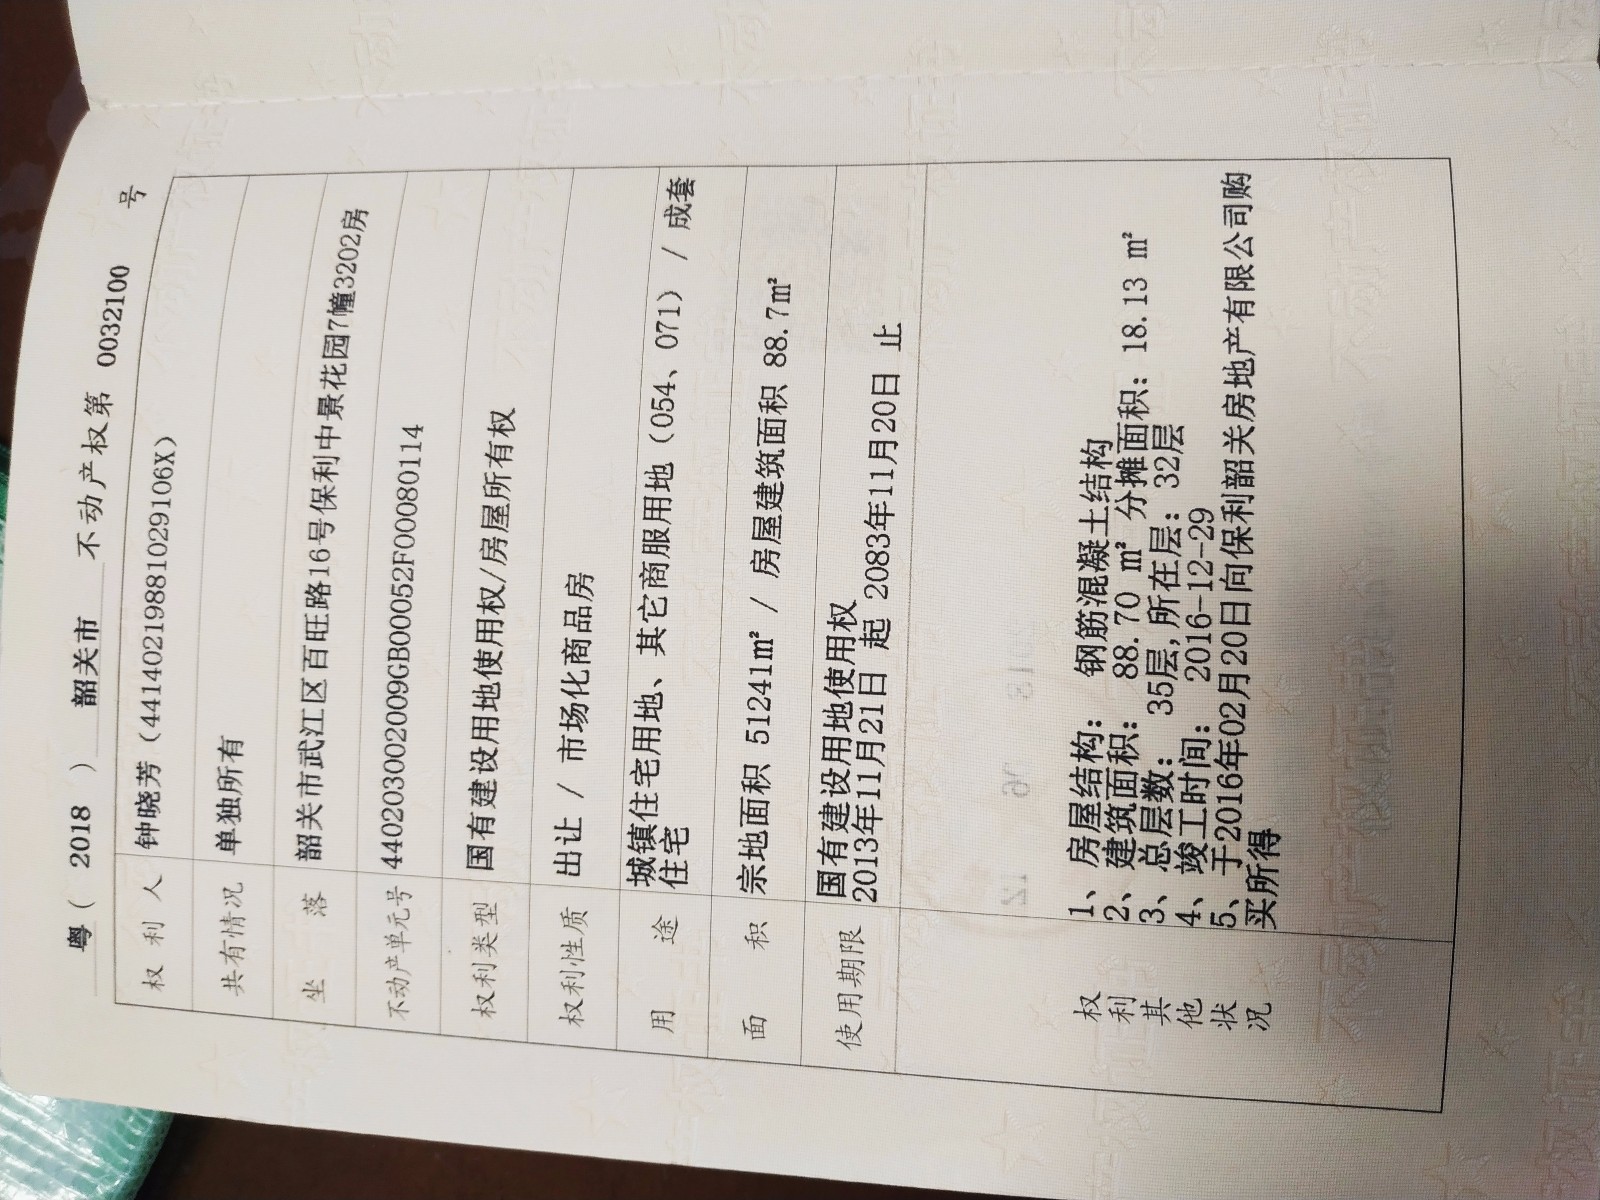 粤（ 2018 ） 韶关市 不动产权第 0032100 号
权利人 钟晓芳（44140219881029106X）
共有情况 单独所有
坐落 韶关市武江区百旺路16号保利中景花园7幢3202房
不动产单元号 440203002009GB00052F00080114
权利类型 国有建设用地使用权/房屋所有权
权利性质 出让 / 市场化商品房
用途 城镇住宅用地、其它商服用地（054、071） / 成套
住宅
面积 宗地面积 51241㎡ / 房屋建筑面积 88.7㎡
使用期限 国有建设用地使用权
2013年11月21日 起 2083年11月20日 止
权利其他状况
1、房屋结构： 钢筋混凝土结构
2、建筑面积： 88.70 ㎡ 分摊面积：18.13 ㎡
3、总层数： 35层,所在层： 32层
4、竣工时间： 2016-12-29
5、于2016年02月20日向保利韶关房地产有限公司购
买所得
不动产权证书